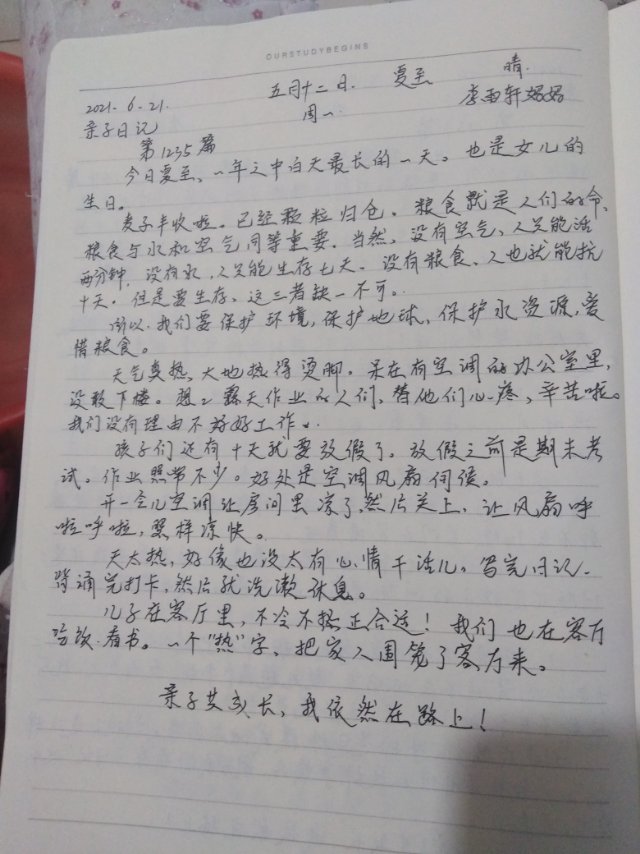 OURSTUDYBEGINS
2021.6.21. 五月十二日. 夏至 晴.
亲子日记 周一. 李雨轩妈妈
第1235篇
今日夏至、一年之中白天最长的一天。也是女儿的
生日。
麦子丰收啦。已经颗粒归仓。粮食就是人们的命、
粮食与水和空气同等重要。当然,没有空气,人只能活
两分钟,没有水,人只能生存七天。没有粮食、人也就能抗
十天。但是要生存、这三者缺一不可。
所以.我们要保护环境,保护地球,保护水资源,爱
惜粮食。
天气真热,大地热得烫脚。呆在有空调的办公室里,
没敢下楼。想想露天作业的人们,替他们心疼,辛苦啦。
我们没有理由不好好工作。
孩子们还有十天就要放假了。放假之前是期末考
试。作业照常不少。好处是空调风扇伺候。
开一会儿空调让房间里凉了,然后关上,让风扇呼
啦呼啦,照样凉快。
天太热,好像也没太有心情干活儿。写完日记.
背诵完打卡,然后就洗漱休息。
儿子在客厅里,不冷不热正合适!我们也在客厅
吃饭.看书。一个"热"字,把家人围笼了客厅来。
亲子共成长,我依然在路上!